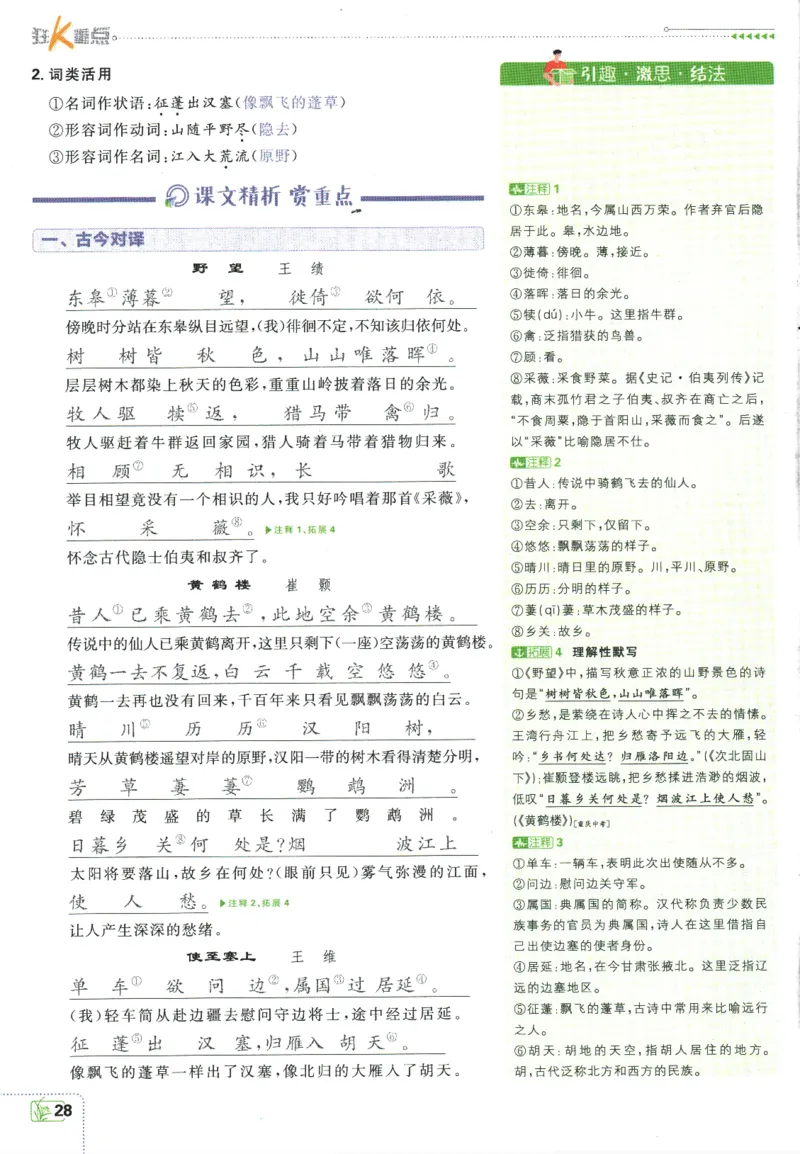 狂K重点
2. 词类活用
①名词作状语:征蓬出汉塞(像飘飞的蓬草)
②形容词作动词:山随平野尽(隐去)
③形容词作名词:江入大荒流(原野)
课文精析 赏重点
一、古今对译
野 望 王 绩
东皋①薄暮②望,徙倚③欲何依。
傍晚时分站在东皋纵目远望,(我)徘徊不定,不知该归依何处。
树树皆秋色,山山唯落晖④。
层层树木都染上秋天的色彩,重重山岭披着落日的余光。
牧人驱犊⑤返,猎马带禽⑥归。
牧人驱赶着牛群返回家园,猎人骑着马带着猎物归来。
相顾⑦无相识,长歌
举目相望竟没有一个相识的人,我只好吟唱着那首《采薇》,
怀采薇⑧。▶注释1、拓展4
怀念古代隐士伯夷和叔齐了。
黄鹤楼 崔 颢
昔人①已乘黄鹤去②,此地空余③黄鹤楼。
传说中的仙人已乘黄鹤离开,这里只剩下(一座)空荡荡的黄鹤楼。
黄鹤一去不复返,白云千载空悠悠④。
黄鹤一去再也没有回来,千百年来只看见飘飘荡荡的白云。
晴川⑤历历⑥汉阳树,
晴天从黄鹤楼遥望对岸的原野,汉阳一带的树木看得清楚分明,
芳草萋萋⑦鹦鹉洲。
碧绿茂盛的草长满了鹦鹉洲。
日暮乡关⑧何处是?烟波江上
太阳将要落山,故乡在何处?(眼前只见)雾气弥漫的江面,
使人愁。▶注释2、拓展4
让人产生深深的愁绪。
使至塞上 王 维
单车①欲问边②,属国③过居延④。
(我)轻车简从赴边疆去慰问守边将士,途中经过居延。
征蓬⑤出汉塞,归雁入胡天⑥。
像飘飞的蓬草一样出了汉塞,像北归的大雁入了胡天。
28
引趣·激思·结法
注释1
①东皋:地名,今属山西万荣。作者弃官后隐
居于此。皋,水边地。
②薄暮:傍晚。薄,接近。
③徙倚:徘徊。
④落晖:落日的余光。
⑤犊(dú):小牛。这里指牛群。
⑥禽:泛指猎获的鸟兽。
⑦顾:看。
⑧采薇:采食野菜。据《史记·伯夷列传》记
载,商末孤竹君之子伯夷、叔齐在商亡之后,
“不食周粟,隐于首阳山,采薇而食之”。后遂
以“采薇”比喻隐居不仕。
注释2
①昔人:传说中骑鹤飞去的仙人。
②去:离开。
③空余:只剩下,仅留下。
④悠悠:飘飘荡荡的样子。
⑤晴川:晴日里的原野。川,平川、原野。
⑥历历:分明的样子。
⑦萋(qī)萋:草木茂盛的样子。
⑧乡关:故乡。
拓展4 理解性默写
①《野望》中,描写秋意正浓的山野景色的诗
句是“树树皆秋色,山山唯落晖”。
②乡愁,是萦绕在诗人心中挥之不去的情愫。
王湾行舟江上,把乡愁寄予远飞的大雁,轻
吟:“乡书何处达?归雁洛阳边。”(《次北固山
下》);崔颢登楼远眺,把乡愁揉进浩渺的烟波,
低叹“日暮乡关何处是?烟波江上使人愁”。
(《黄鹤楼》)[重庆中考]
注释3
①单车:一辆车,表明此次出使随从不多。
②问边:慰问边关守军。
③属国:典属国的简称。汉代称负责少数民
族事务的官员为典属国,诗人在这里借指自
己出使边塞的使者身份。
④居延:地名,在今甘肃张掖北。这里泛指辽
远的边塞地区。
⑤征蓬:飘飞的蓬草,古诗中常用来比喻远行
之人。
⑥胡天:胡地的天空,指胡人居住的地方。
胡,古代泛称北方和西方的民族。